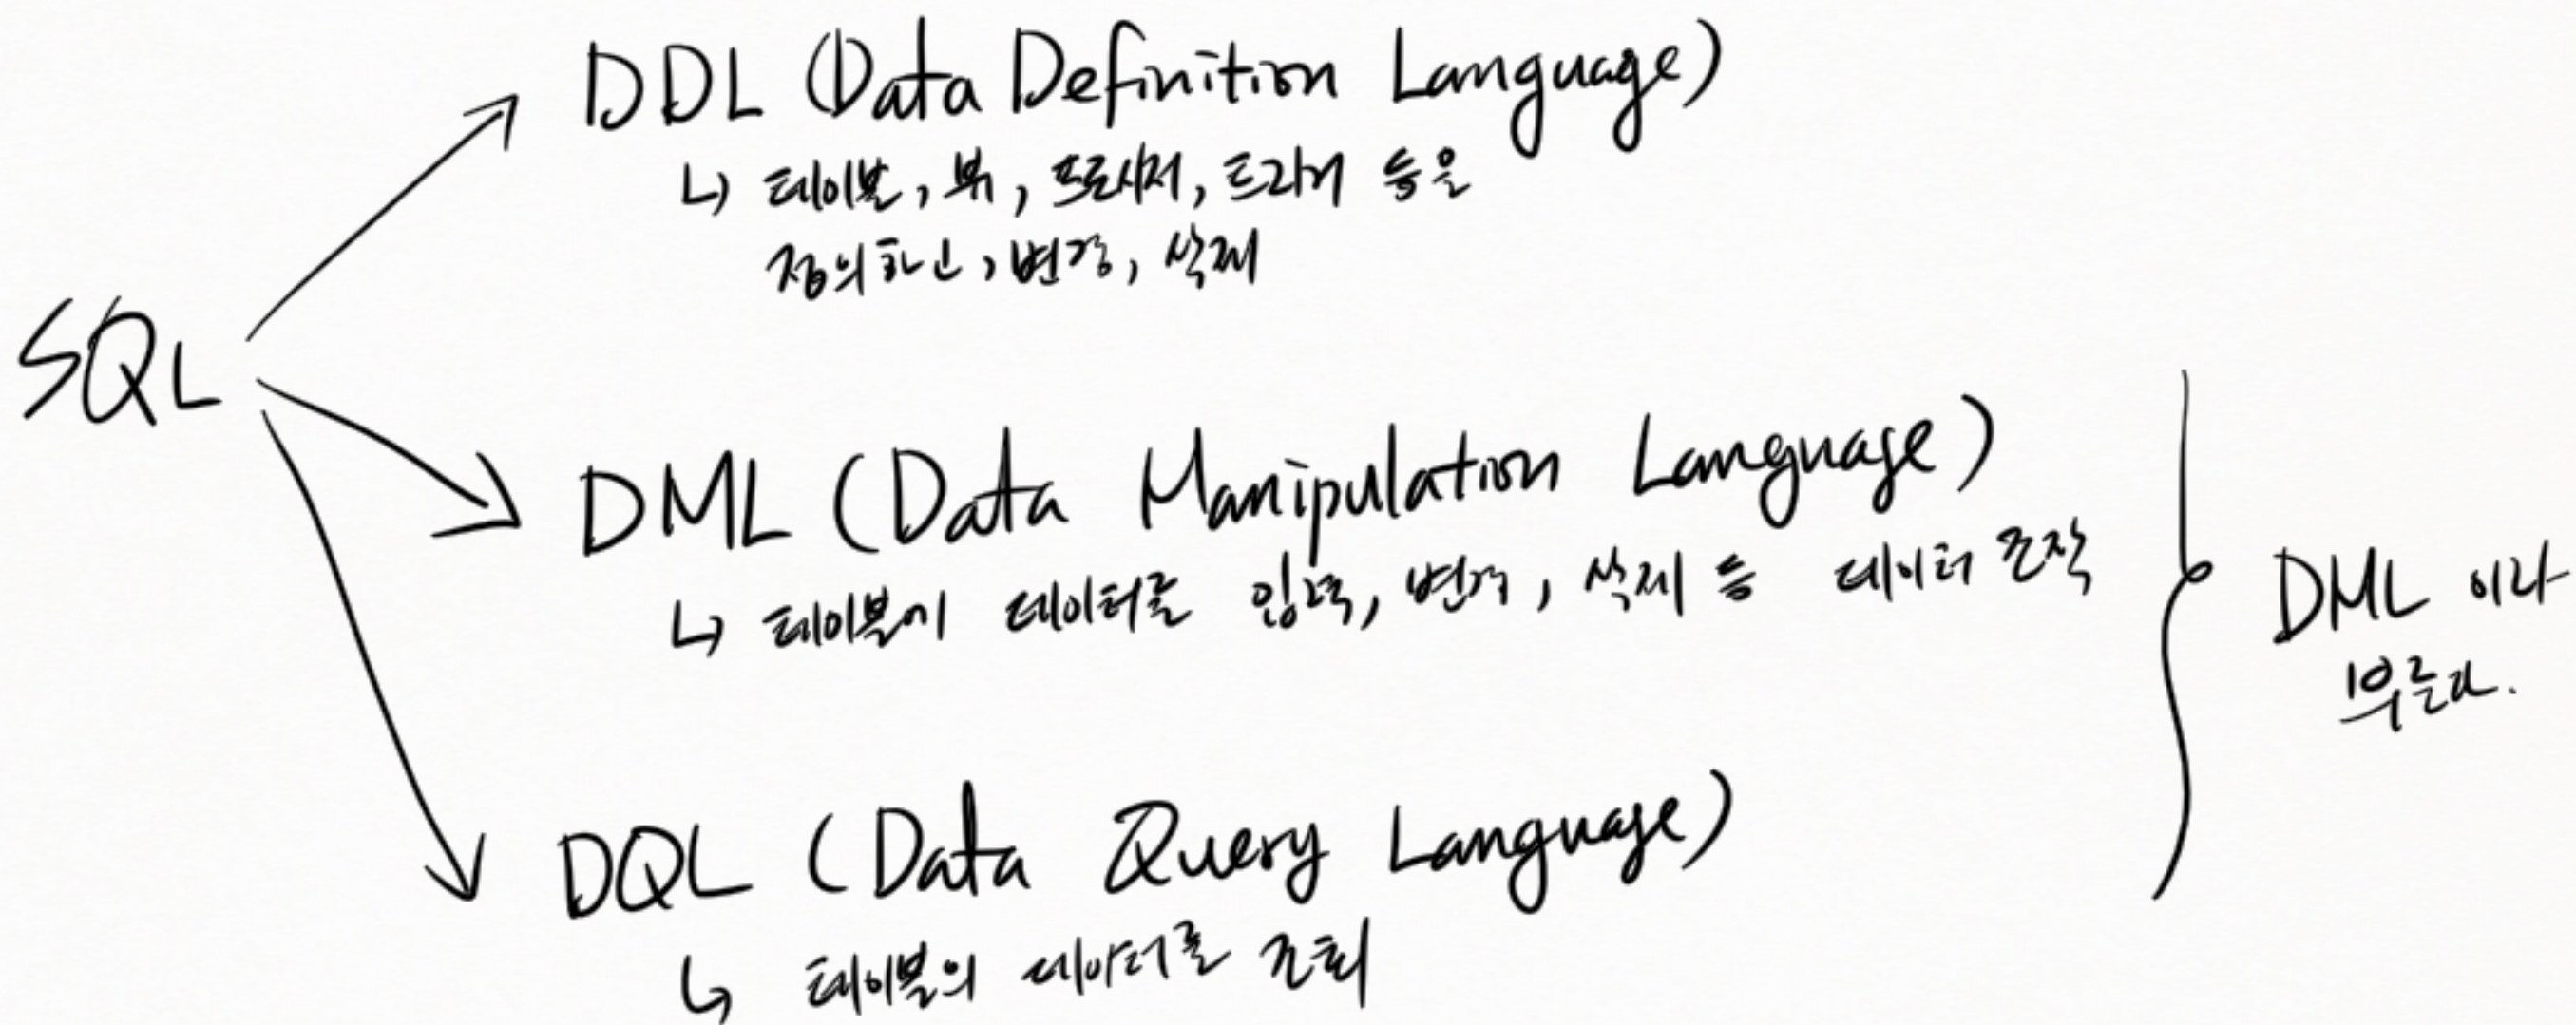 DDL (Data Definition Language)
↳ 테이블, 뷰, 프로시저, 트리거 등을
정의하고, 변경, 삭제
SQL
DML (Data Manipulation Language)
↳ 테이블에 데이터를 입력, 변경, 삭제 등 데이터 조작
DML 이라
부른다.
DQL (Data Query Language)
↳ 테이블의 데이터를 조회